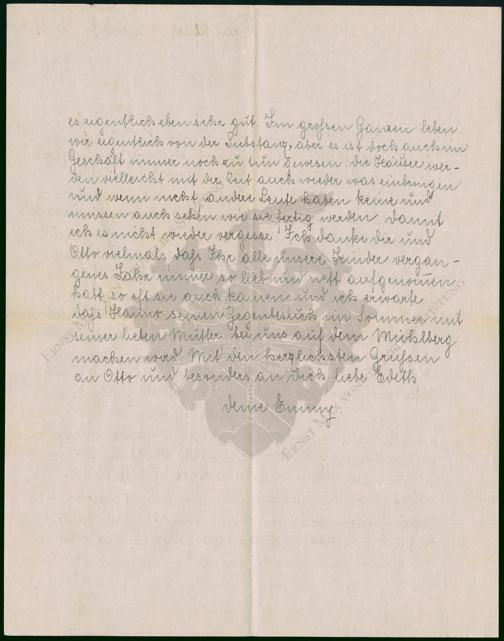 es eigentlich eben sehr gut. Im grossen Ganzen leben
wir eigentlich von der Substanz, aber es ist doch auch im
Geschäft immer noch zu tun gewesen. Die Häuser wer-
den vielleicht mit der Zeit auch wieder was einbringen
und wenn nicht, andere Leute haben keine und
müssen auch sehen wie sie fertig werden. Damit
ich es nicht wieder vergesse! Ich danke dir und
Otto vielmals dass Ihr alle unsere Kinder vergan-
genes Jahr immer so lieb und nett aufgenommen
habt so oft sie auch kamen und ich erwarte
dass Haimo seinen Gegenbesuch im Sommer mit
seiner lieben Mutter bei uns auf dem Michlberg
machen wird. Mit den herzlichsten Grüssen
an Otto und besonders an Dich liebe Edith
deine Emmy
ERNST MAX VON
STIFTUNG
ERNST MAX VON